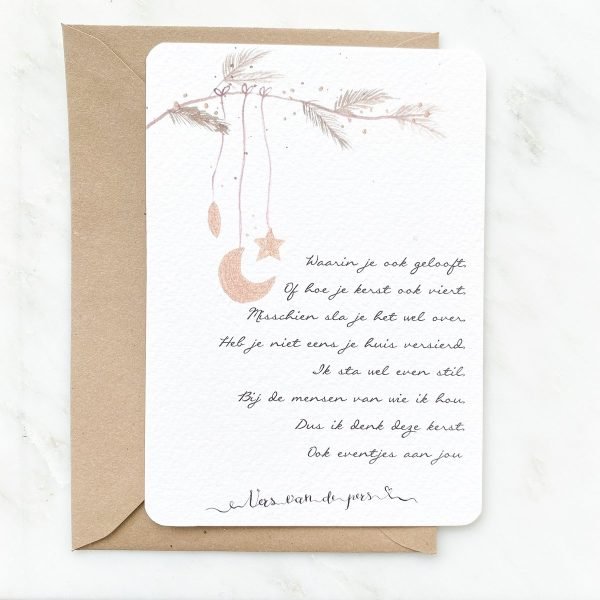 Waarin je ook gelooft,
Of hoe je kerst ook viert,
Misschien sla je het wel over,
Heb je niet eens je huis versierd,
Ik sta wel even stil,
Bij de mensen van wie ik hou,
Dus ik denk deze kerst,
Ook eventjes aan jou
Vers van de pers